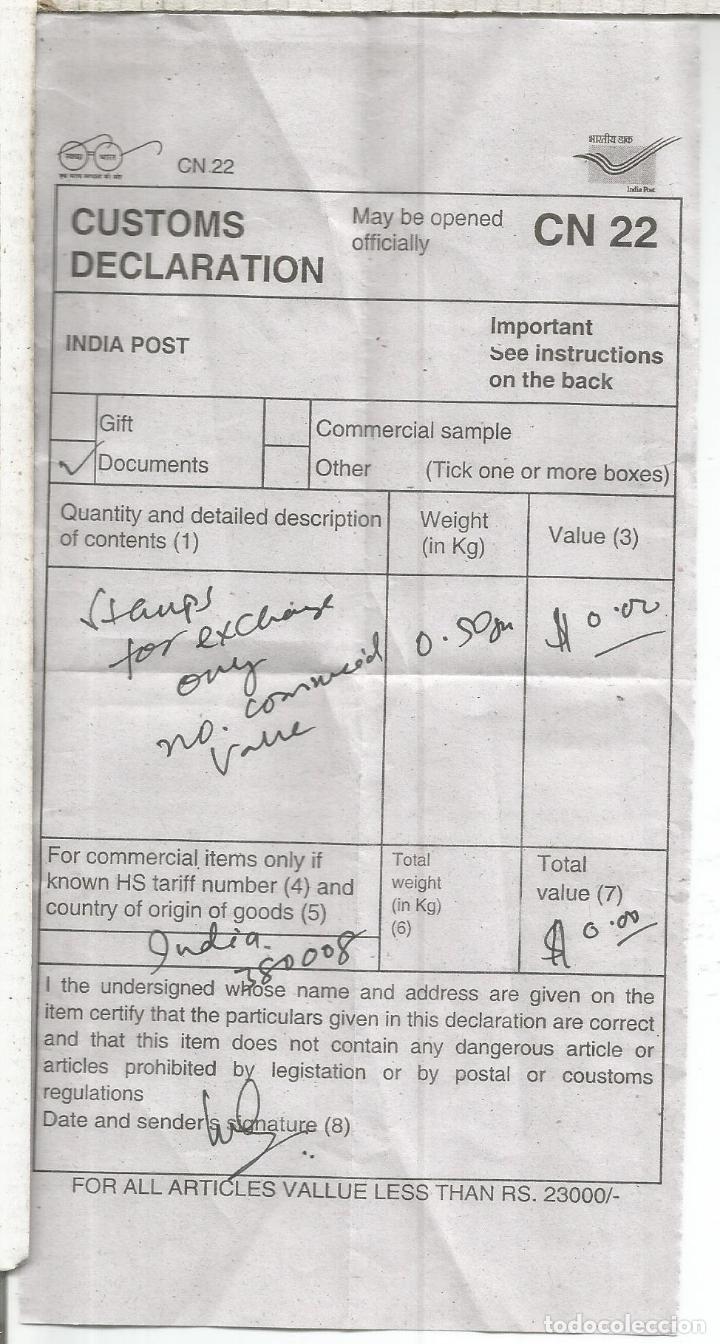 स्वच्छ भारत
CN 22
भारतीय डाक
India Post
CUSTOMS
DECLARATION
May be opened
officially
CN 22
INDIA POST
Important
See instructions
on the back
Gift
Commercial sample
✓ Documents
Other (Tick one or more boxes)
Quantity and detailed description
of contents (1)
Weight
(in Kg)
Value (3)
Stamps
for exchange
only
no. commercial
Value
0.50gm
$ 0.00
For commercial items only if
known HS tariff number (4) and
country of origin of goods (5)
Total
weight
(in Kg)
(6)
Total
value (7)
$ 0.00
India.
380008
I the undersigned whose name and address are given on the
item certify that the particulars given in this declaration are correct
and that this item does not contain any dangerous article or
articles prohibited by legistation or by postal or coustoms
regulations
Date and sender's signature (8)
FOR ALL ARTICLES VALLUE LESS THAN RS. 23000/-
todocoleccion